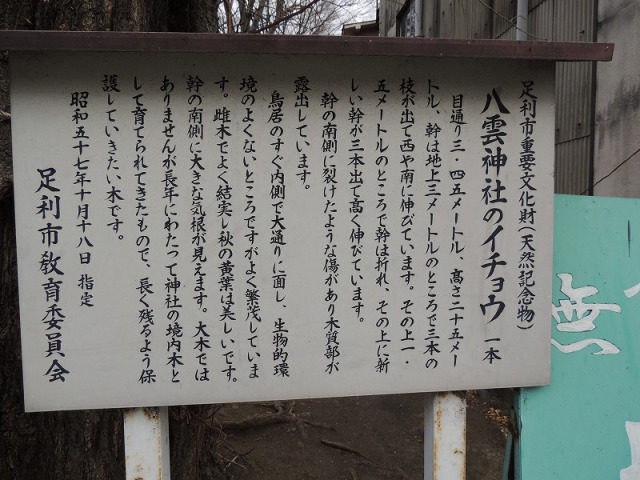 足利市重要文化財(天然記念物)
八雲神社のイチョウ 一本
目通り三・四五メートル、高さ二十五メー
トル、幹は地上三メートルのところで三本の
枝が出て西や南に伸びています。その上一・
五メートルのところで幹は折れ、その上に新
しい幹が三本出て高く伸びています。
幹の南側に裂けたような傷があり木質部が
露出しています。
鳥居のすぐ内側で大通りに面し、生物的環
境のよくないところですがよく繁茂していま
す。雌木でよく結実し秋の黄葉は美しいです。
幹の南側に大きな気根が見えます。大木では
ありませんが長年にわたって神社の境内木と
して育てられてきたもので、長く残るよう保
護していきたい木です。
昭和五十七年十月十八日 指定
足利市教育委員会
無